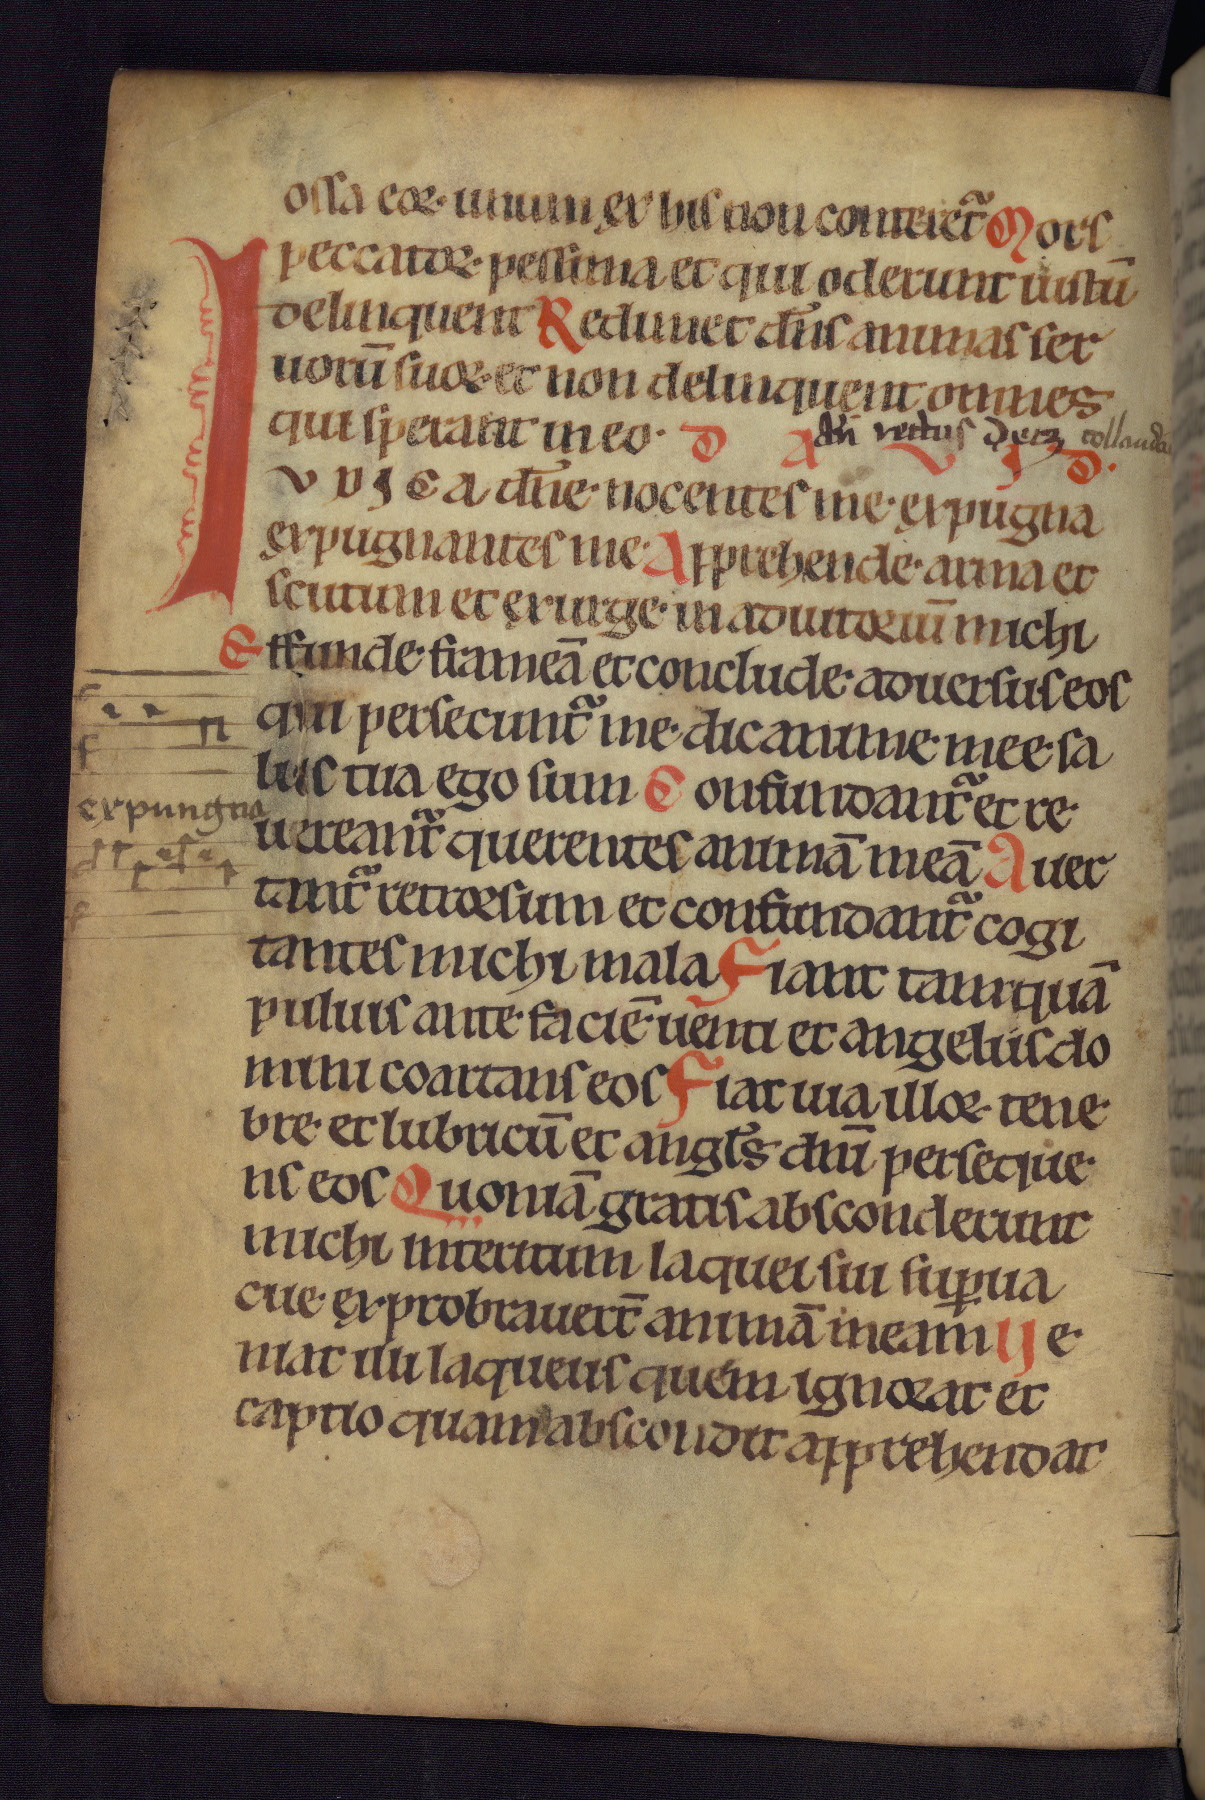 ossa eoꝝ unum ex his non conteret᷑ Mors
peccatoꝝ pessima et qui oderunt iustū
delinquent Redimet dn̄s animas ser
uorū suoꝝ et non delinquent omnes
qui sperant in eo. D A
rectus decꝫ collauda
IVDICA dn̄e nocentes me expugna
expugnantes me Apprehende arma et
scutum et exurge in adiutoriū michi
Effunde frameā et conclude aduersus eos
qui persecunt᷑ me dic anime mee sa
lus tua ego sum Confundant᷑ et re
expungna
uereant᷑ querentes animā meā Auer
tant᷑ retrorsum et confundant᷑ cogi
tantes michi mala Fiant tamquā
puluis ante faciē uenti et angelus do
mini coartans eos Fiat uia illoꝝ tene
bre et lubricū et angl̄s dnī perseque
ns eos Quoniā gratis absconderunt
michi interitum laquei sui suꝑua
cue exprobrauert̄ animā meam Ue
niat illi laqueus quem ignorat et
captio quam abscondit apprehendat